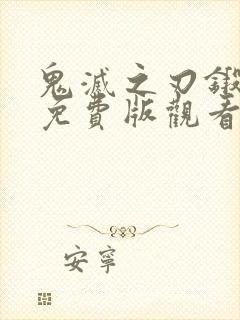 鬼滅之刃鍛
免費版觀看
安寧